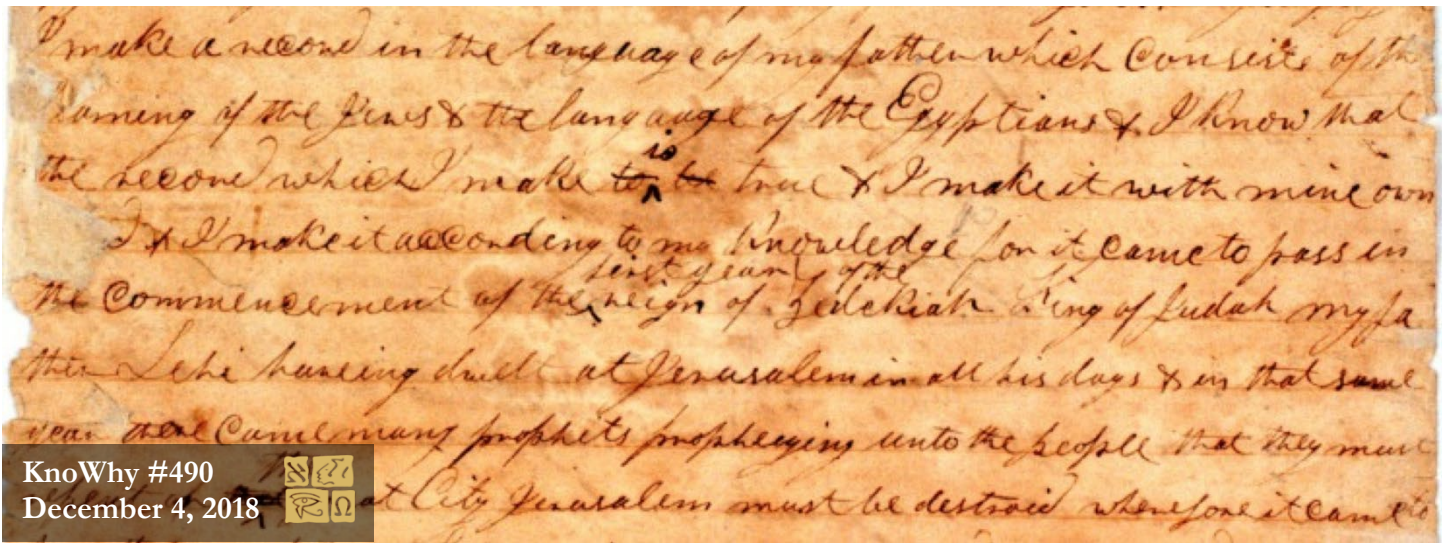 I make a record in the language of my father which consists of the
larning of the Jews & the language of the Egyptians & I know that
is
the record which I make to be true & I make it with mine own
& I make it according to my Knowledge for it came to pass in
first year of the
the commencement of the reign of Zedekiah King of Judah my fa
ther Lehi haveing dwelt at Jerusalem in all his days & in that same
year there came many prophets prophesying unto the people that they must
at City Jerusalem must be destroid wherefore it came to
KnoWhy #490
December 4, 2018